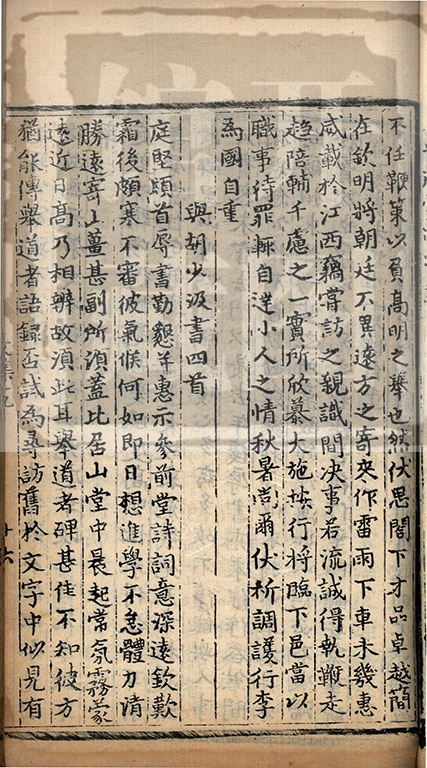 不任鞭策以負髙明之舉也然伏思閤下才品卓越簡
在欽明將朝廷不異遠方之寄來作雷雨下車未幾惠
威載於江西竊嘗訪之親識間決事若流誠得執鞭走
趍陪輔千慮之一實所欣慕大施垓行將臨下邑當以
職事待罪輙自逹小人之情秋暑尚爾伏祈調護行李
為國自重
與胡少汲書四首
庭堅頓首辱書勤懇并惠示參前堂詩詞意深遠欽歎
霜後頗寒不審彼氣候何如即日想進學不怠體力清
勝遠寄上薑甚副所湏蓋比居山堂中晨起常氛霧蒙
遠近日髙乃相辨故湏此耳舉道者碑甚佳不知彼方
猶能傳舉道者語録否試為尋訪舊於文字中似見有